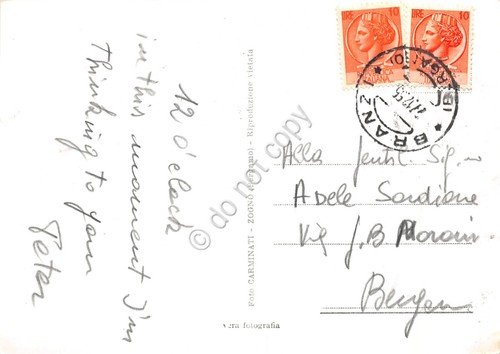 12 o'clock
in this moment I'm
Thinking to you
Peter
Foto CARMINATI - ZOGNO (Bergamo) - Riproduzione vietata
vera fotografia
LIRE 10
LIRE 10
BRANZI
Alla Gentil. Sig.
Adele
Via G.B.
do not copy